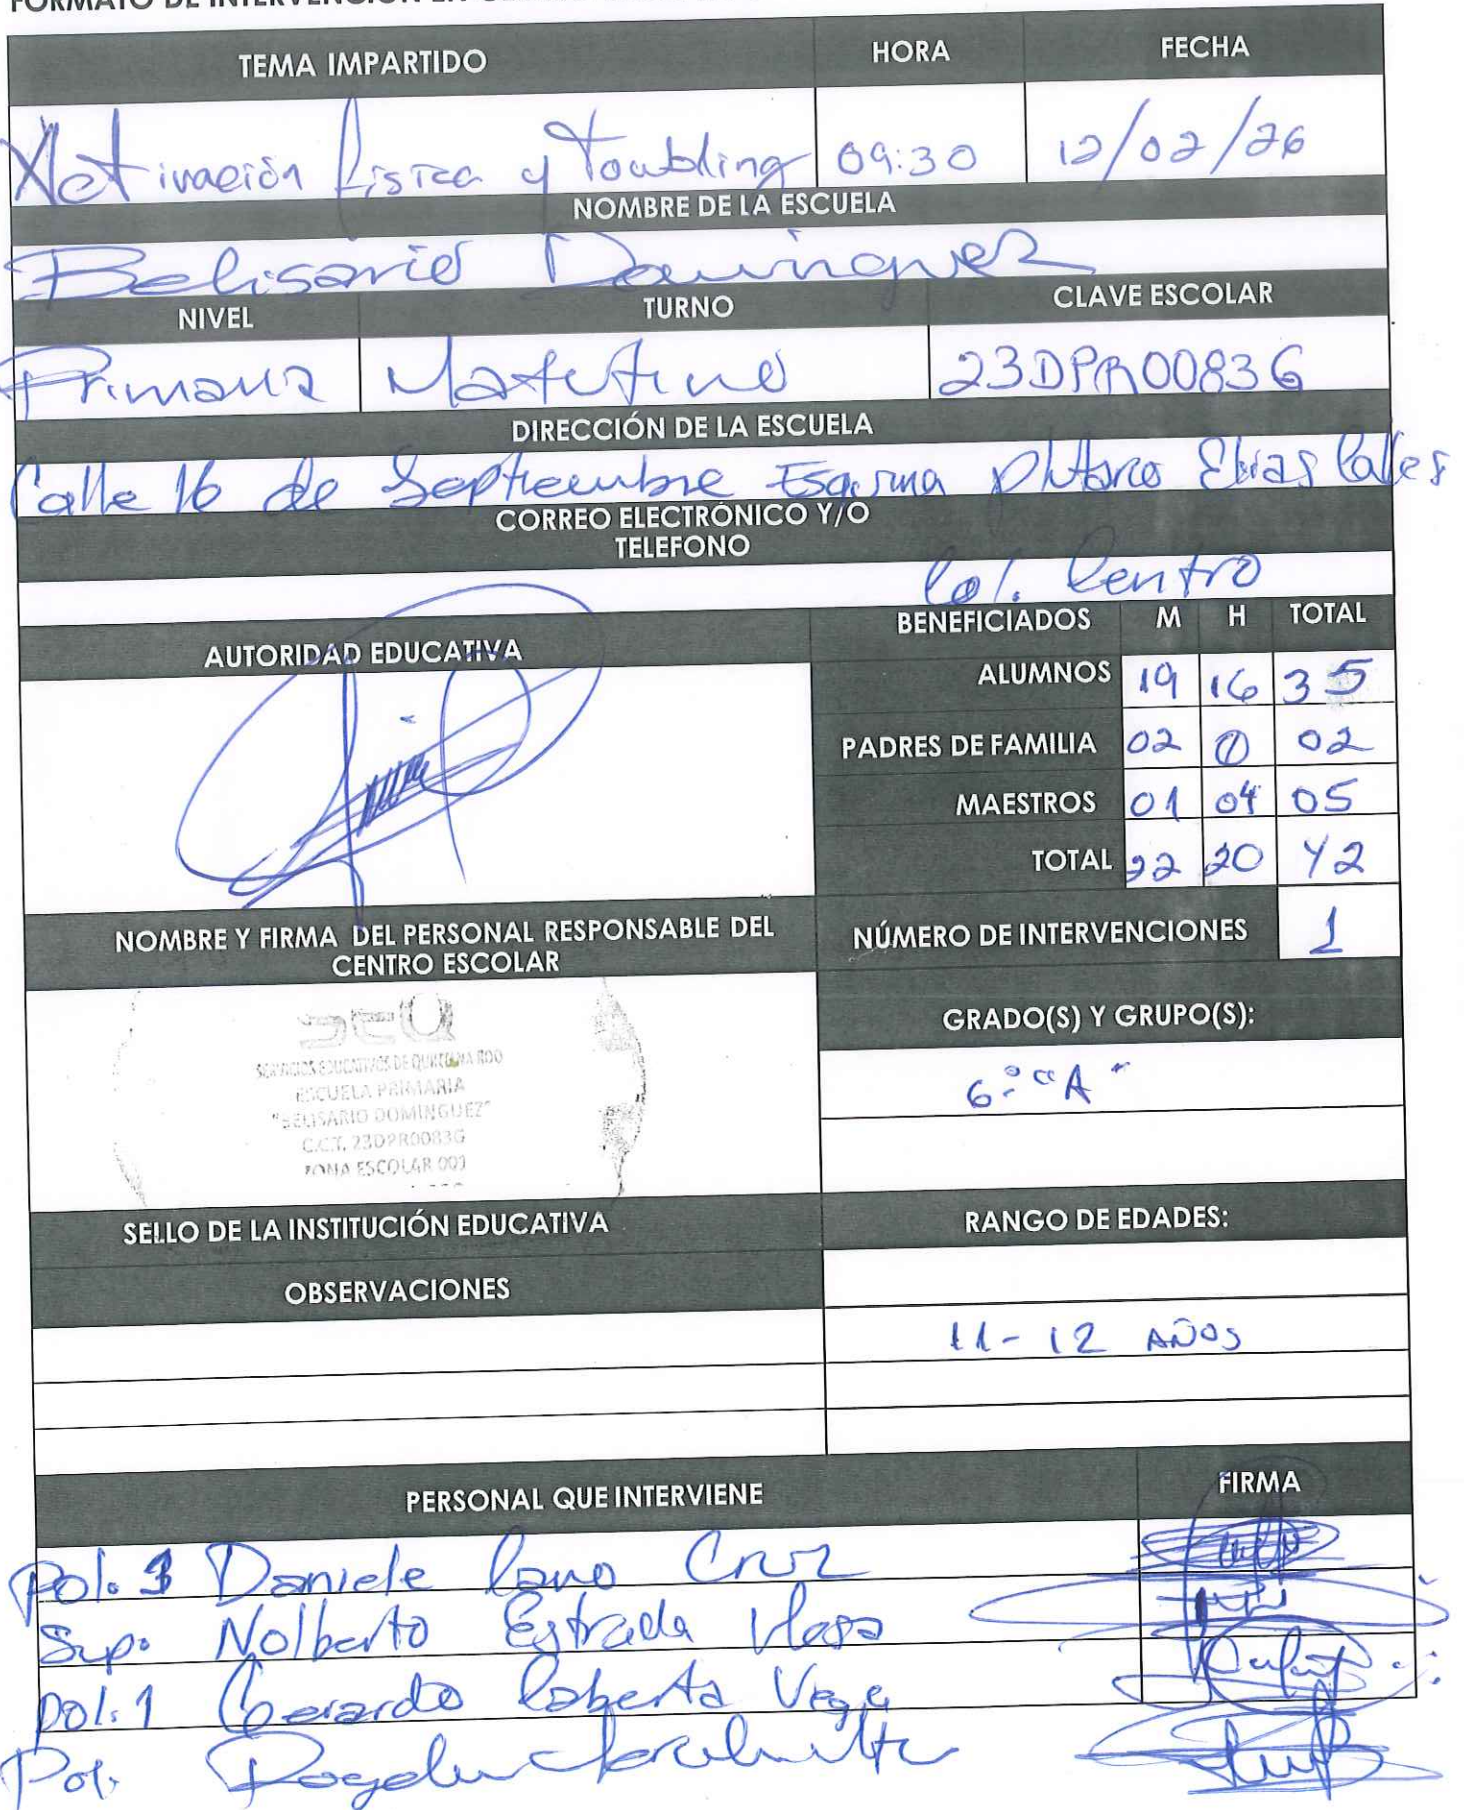 FORMATO DE INTERVENCIÓN EN
TEMA IMPARTIDO HORA FECHA
Activación física y Toubling 09:30 12/02/26
NOMBRE DE LA ESCUELA
Belisario Dominguez
NIVEL TURNO CLAVE ESCOLAR
Primaria Matutino 23DPR0083G
DIRECCIÓN DE LA ESCUELA
Calle 16 de Septiembre Esquina Plutarco Elias Calles
CORREO ELECTRÓNICO Y/O
TELEFONO
Col. Centro
AUTORIDAD EDUCATIVA
BENEFICIADOS M H TOTAL
ALUMNOS 19 16 35
PADRES DE FAMILIA 02 0 02
MAESTROS 01 04 05
TOTAL 22 20 42
NOMBRE Y FIRMA DEL PERSONAL RESPONSABLE DEL
CENTRO ESCOLAR
NÚMERO DE INTERVENCIONES 1
SERVICIOS EDUCATIVOS DE QUINTANA ROO
ESCUELA PRIMARIA
"BELISARIO DOMINGUEZ"
C.C.T. 23DPR0083G
ZONA ESCOLAR 001
GRADO(S) Y GRUPO(S):
6º "A"
SELLO DE LA INSTITUCIÓN EDUCATIVA
RANGO DE EDADES:
OBSERVACIONES
11-12 AÑOS
PERSONAL QUE INTERVIENE FIRMA
Pol. 3 Daniele Cano Cruz
Sup. Nolberto Estrada
Pol. 1 Gerardo Vega
Pol.